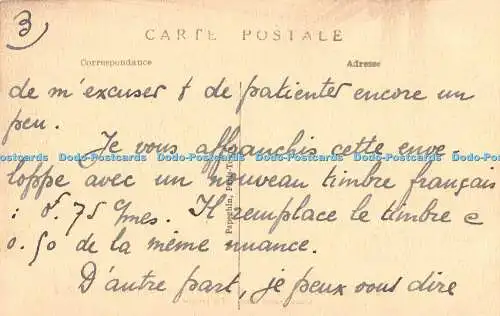 3
CARTE POSTALE
Correspondance Adresse
de m'excuser & de patienter encore un
peu.
Je vous affranchis cette enve-
Dodo-Postcards Dodo-Postcards Dodo-Postcards Dodo-Postcards Dodo-Postcards
loppe avec un nouveau timbre français
: 0f.75 cmes. Il remplace le timbre à
0.50 de la même nuance.
D'autre part, je peux vous dire
Papeghin, Paris-Tours